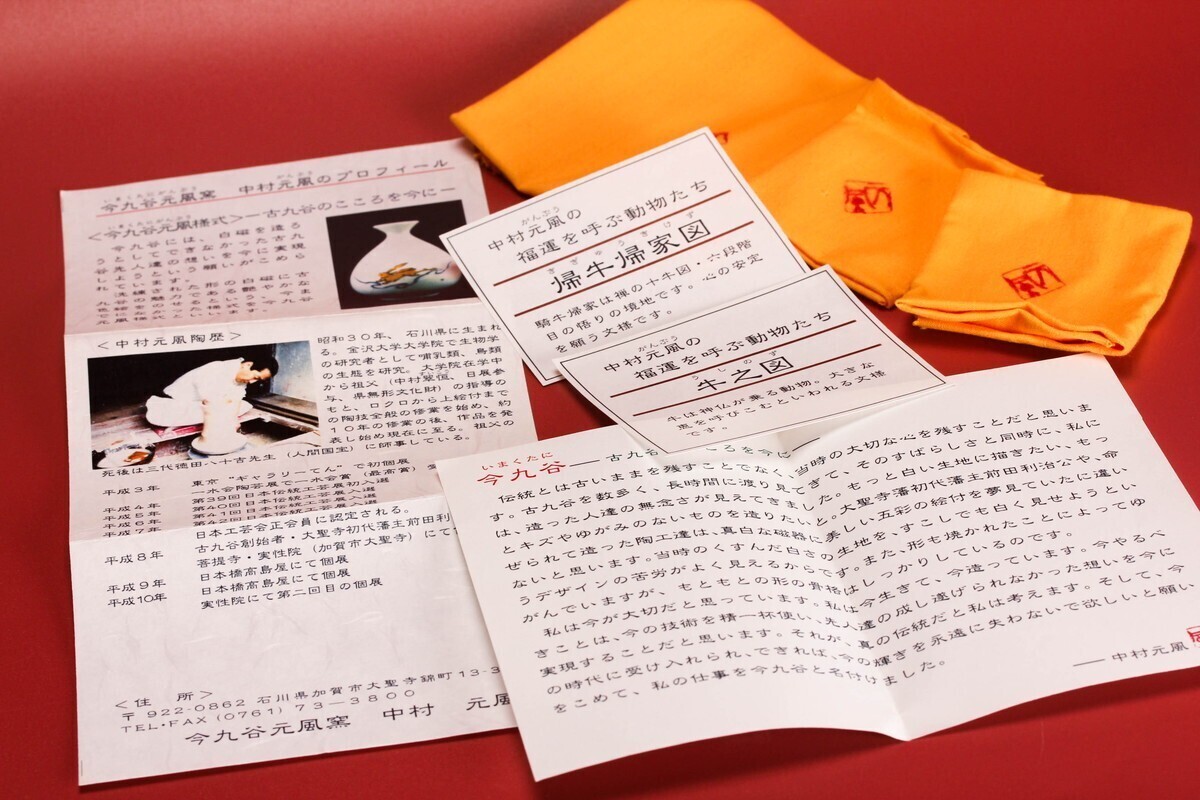 いまくたにがんぷう がんぷう
今九谷元風窯 中村元風のプロフィール
いまくたにがんぷう
＜今九谷元風様式＞―古九谷のこころを今に―
今九谷には、白磁を造ろ
うとしてできなかった古九
谷先人達の想いを今に実現
しようという願いがこめら
れています。
洗練された形の白磁に古
九谷の魅力である艶やかな
色絵をのせるという、今ま
でになかった様式を、今九谷
元風様式といいます。
＜中村元風陶歴＞
昭和３０年、石川県に生まれ
る。金沢大学大学院で生物学
の研究者として哺乳類、鳥類
の生態を研究。大学院在学中
から祖父（中村翠恒、日展参
与、県無形文化財）の指導の
もと、ロクロから上絵付まで
の陶技全般の修業を始め、約
１０年の修業の後、作品を発
表し始め現在に至る。祖父の
死後は三代徳田八十吉先生（人間国宝）に師事している。
平成３年 東京“ギャラリーてん”で初個展
一水会陶芸展で一水会賞（最高賞）受
平成４年 第39回日本伝統工芸展初入選
平成５年 第40回日本伝統工芸展入選
平成６年 第41回日本伝統工芸展入選
平成７年 第42回日本伝統工芸展入選
日本工芸会正会員に認定される。
平成８年 古九谷創始者・大聖寺初代藩主前田利
菩提寺・実性院（加賀市大聖寺）にて
日本橋高島屋にて個展
平成９年 日本橋高島屋にて個展
平成10年 実性院にて第二回目の個展
＜住 所＞
〒922-0862 石川県加賀市大聖寺錦町13-3
TEL・FAX (0761) 73－3800
今九谷元風窯 中村 元風
がんぷう
中村元風の
福運を呼ぶ動物たち
きぎゅうきけず
帰牛帰家図
騎牛帰家は禅の十牛図・六段階
目の悟りの境地です。心の安定
を願う文様です。
がんぷう
中村元風の
福運を呼ぶ動物たち
うしのず
牛之図
牛は神仏が乗る動物。大きな
恵を呼びこむといわれる文様
です。
いまくたに
今九谷――古九谷のこころを今に
伝統とは古いままを残すことでなく、当時の大切な心を残すことだと思いま
す。古九谷を数多く、長時間に渡り見てきて、そのすばらしさと同時に、私に
は、造った人達の無念さが見えてきました。もっと白い生地に描きたい、もっ
とキズやゆがみのないものを造りたいと。大聖寺藩初代藩主前田利治公や、命
ぜられて造った陶工達は、真白な磁器に美しい五彩の絵付を夢見ていたに違い
ないと思います。当時のくすんだ白さの生地を、すこしでも白く見せようとい
うデザインの苦労がよく見えるからです。また、形も焼かれたことによってゆ
がんでいますが、もともとの形の骨格はしっかりしているのです。
私は今が大切だと思っています。私は今生きて、今造っています。今やるべ
きことは、今の技術を精一杯使い、先人達の成し遂げられなかった想いを今に
実現することだと思います。それが、真の伝統だと私は考えます。そして、今
の時代に受け入れられ、できれば、今の輝きを永遠に失わないで欲しいと願い
をこめて、私の仕事を今九谷と名付けました。
――中村元風